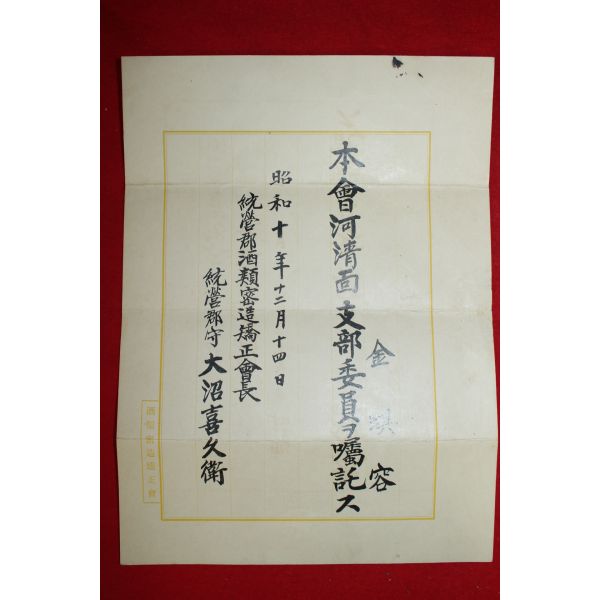 金 淇 容
本會河淸面支部委員ヲ囑託ス
昭和十年十二月十四日
統營郡酒類密造矯正會長
統營郡守 大沼喜久衛
酒類密造矯正會